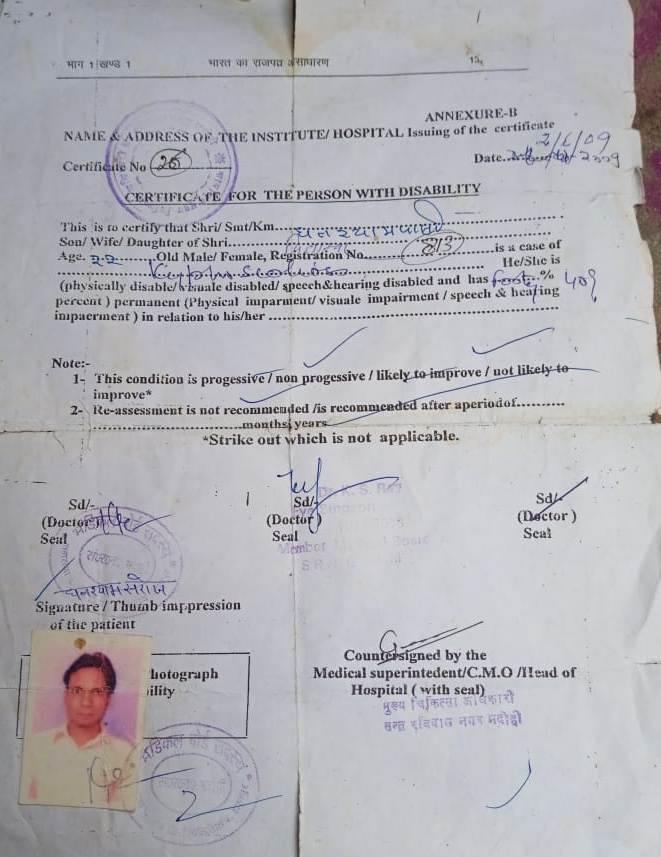 भाग 1 खण्ड 1 भारत का राजपत्र असाधारण 15
ANNEXURE-B
NAME & ADDRESS OF THE INSTITUTE/ HOSPITAL Issuing of the certificate
Certificate No 26 Date.. 2/6/09
CERTIFICATE FOR THE PERSON WITH DISABILITY
This is to certify that Shri/ Smt/Km....
Son/ Wife/ Daughter of Shri...
Age. २२ ........,Old Male/ Female, Registration No. ...is a case of
He/She is
(physically disable/ visuale disabled/ speech&hearing disabled and has forty..% 40%
percent ) permanent (Physical imparment/ visuale impairment / speech & heafing
impaerment ) in relation to his/her ................
Note:-
1- This condition is progessive / non progessive / likely to improve / not likely to
improve*
2- Re-assessment is not recommended /is recommended after aperiodof..........
................months, years
*Strike out which is not applicable.
Sd/- Sd/- Sd/-
(Doctor) (Doctor) (Doctor )
Seal Seal Seal
Dr. K. S. Rai
Eye Surgeon
Member
मेडिकल बोर्ड सदस्य
घनश्याम सरोज
Signature / Thumb impression
of the patient
Countersigned by the
hotograph Medical superintedent/C.M.O /Head of
ility Hospital ( with seal)
मुख्य चिकित्सा अधिकारी
सन्त रविदास नगर भदोही
मेडिकल बोर्ड सदस्य